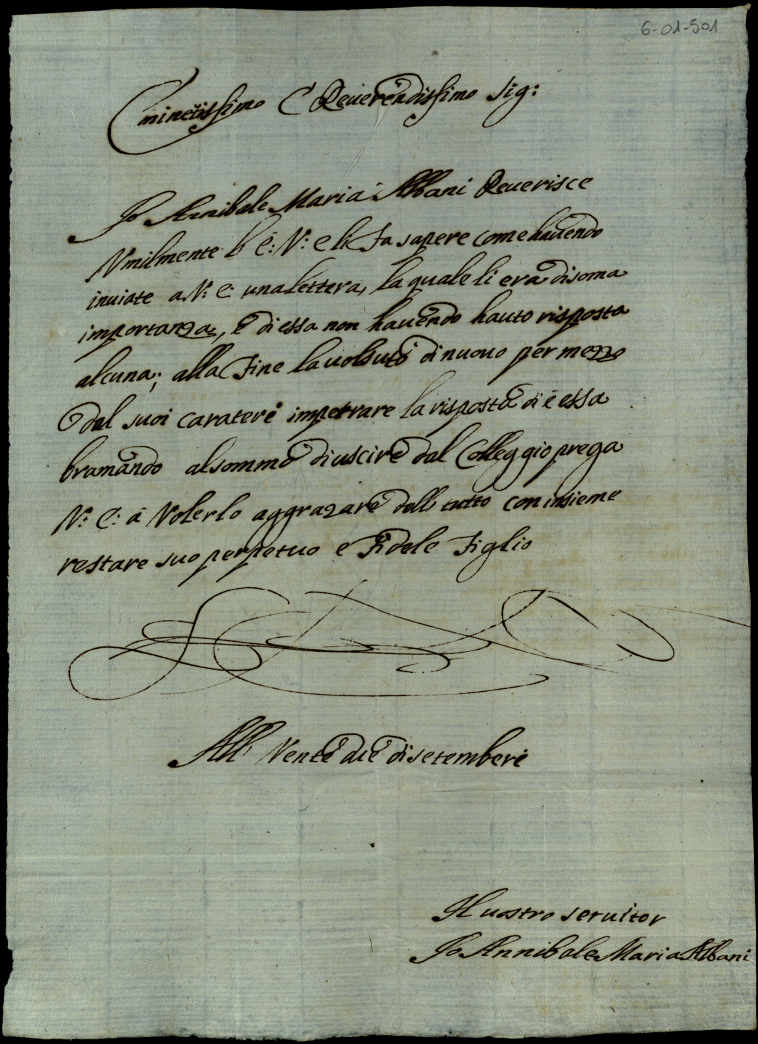 6-01-501
Eminẽtissimo E Reverendissimo Sig:
Io Annibale Maria Albani Reverisce
Vmilmente l' E: V: e li Fa sapere come havendo
inuiate a V: E una Lettera, la quale li era di soma
importanza, e di essa non havendo hauto risposta
alcuna; alla Fine la uolsuto di nuouo per mezo
dal suoi caratere impetrare la risposta di è essa
bramando al sommo di uscire dal Colleggio prega
V: E: a Volerlo aggrazare dell tutto con insieme
restare suo perpetuo e Fidele Figlio
Alli Vente die di setembere
Il uostro seruitor
Io Annibale Maria Albani